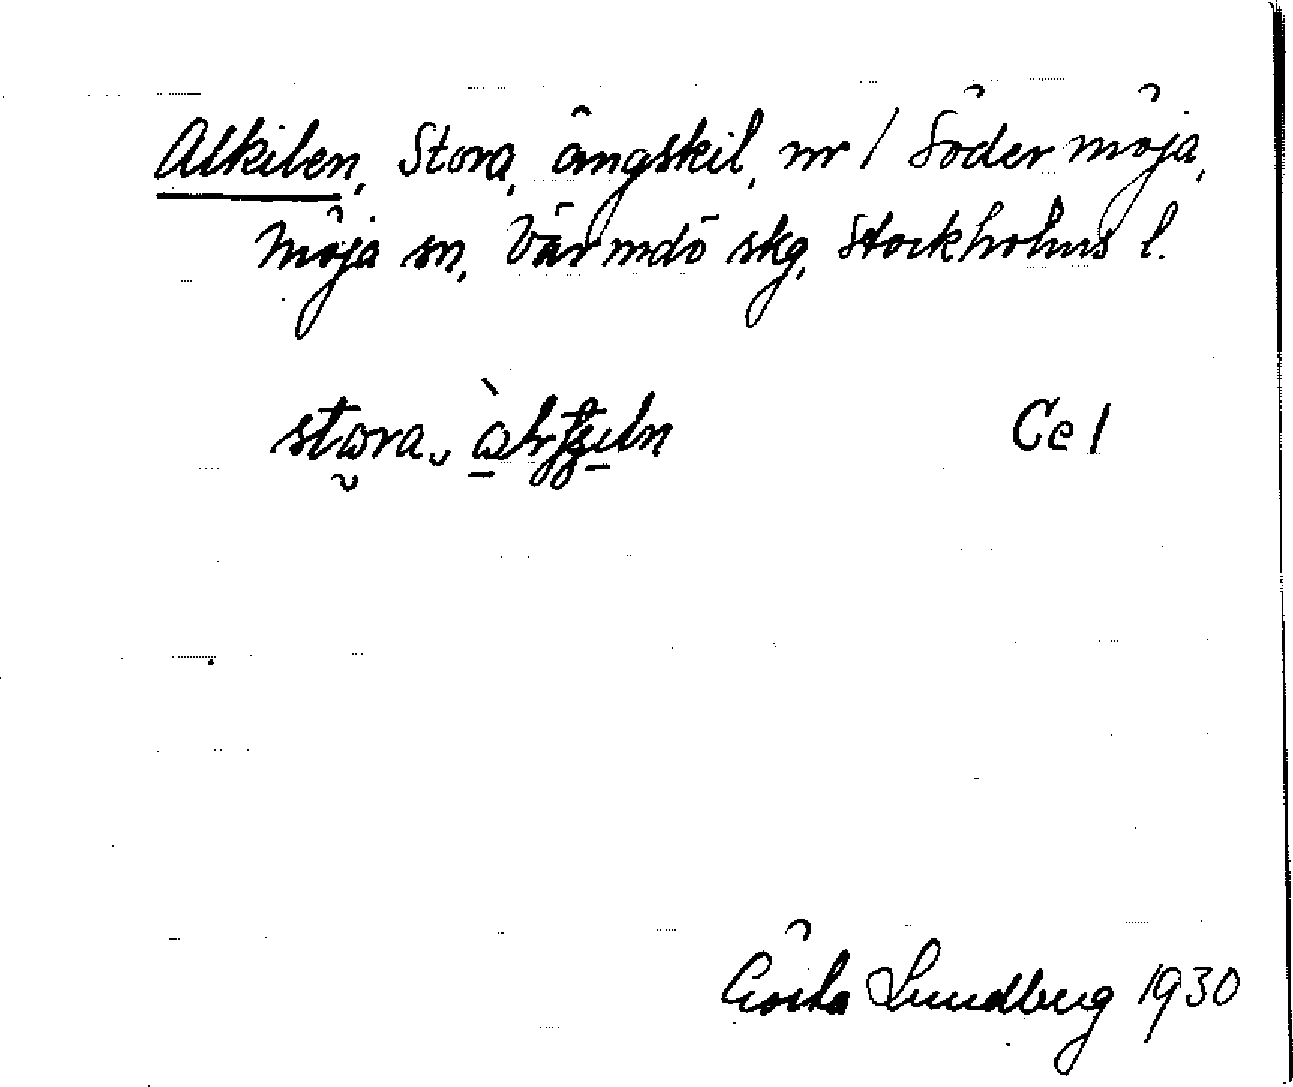 Alkilen, Stora, ängskil, nr 1 Södermöja,
Möja sn, Värmdö skg, Stockholms l.
stora Ce 1
Gösta Lundberg 1930